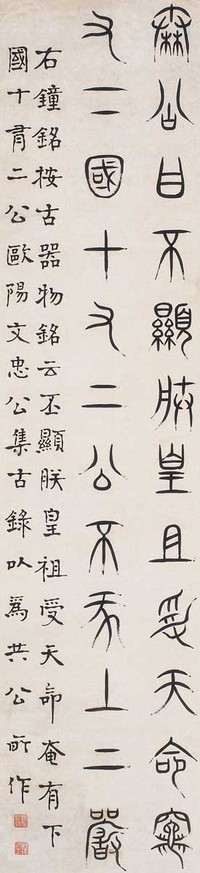 秦公曰不顯朕皇且受天命竈
又下國十又二公不㒸上下嚴
右鐘銘按古器物銘云丕顯朕皇祖受天命奄有下
國十有二公歐陽文忠公集古錄以爲共公所作